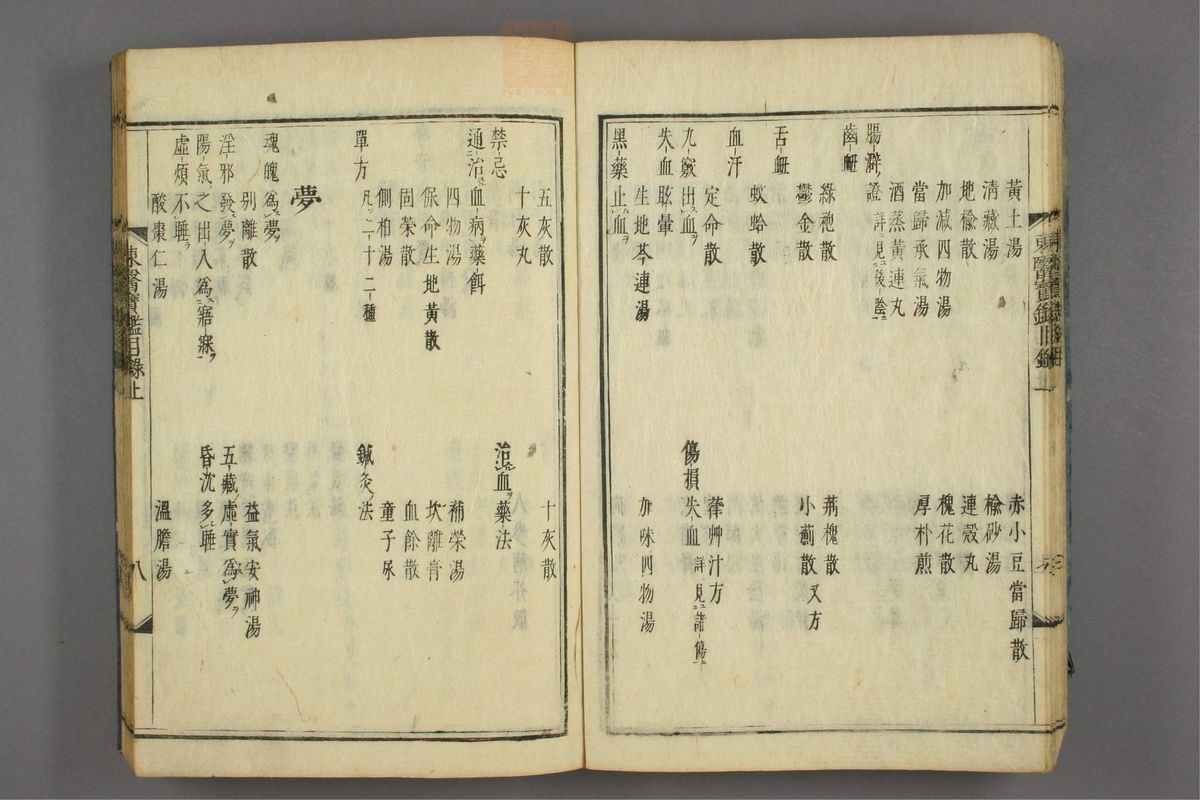 黃土湯 赤小豆當歸散
淸藏湯 楡砂湯
地楡散 連殼丸
加減四物湯 槐花散
當歸承氣湯 厚朴煎
酒蒸黃連丸
腸澼證 詳見後陰
齒衄
綠袍散 荊槐散
鬱金散 小薊散 又方
舌衄
蚊蛤散
血汗
定命散 葎艸汁方
九竅出血 傷損失血 詳見諸傷
失血眩暈
生地芩連湯 加味四物湯
黑藥止血
五灰散 十灰散
十灰丸
禁忌 治血藥法
通治血病藥餌
四物湯 補榮湯
保命生地黃散 坎離膏
固榮散 血餘散
側柏湯 童子尿
單方 凡二十二種 鍼灸法
夢
魂魄爲夢
別離散 益氣安神湯
淫邪發夢 五藏虛實爲夢
陽氣之出入爲寤寐 昏沈多睡
虛煩不睡
酸棗仁湯 溫膽湯
東醫寶鑑目錄上 八